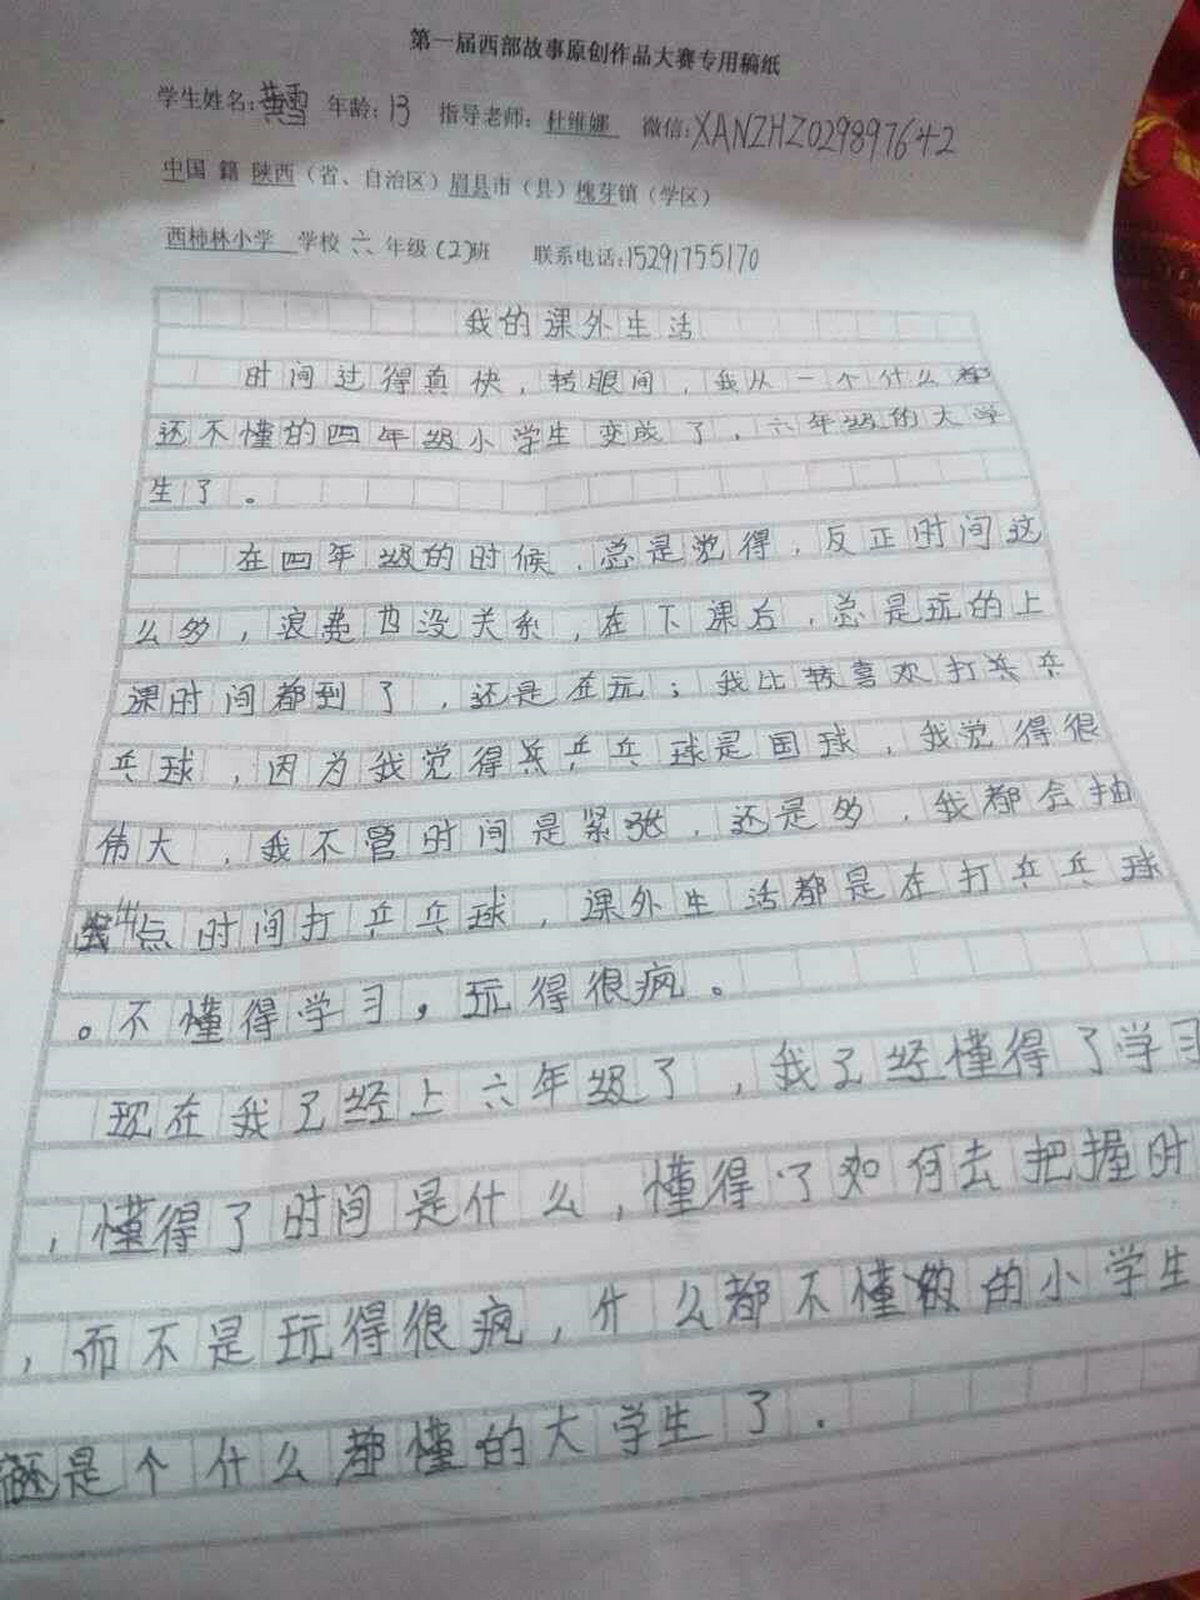 第一届西部故事原创作品大赛专用稿纸
学生姓名:黄雪 年龄:13 指导老师:杜维娜 微信:XANZHZ029897642
中国 籍 陕西(省、自治区)眉县市(县)槐芽镇(学区)
西柿林小学 学校 六 年级(2)班 联系电话:15291755170
我的课外生活
时间过得真快,转眼间,我从一个什么都
还不懂的四年级小学生变成了,六年级的大学
生了。
在四年级的时候,总是觉得,反正时间这
么多,浪费也没关系,在下课后,总是玩的上
课时间都到了,还是在玩;我比较喜欢打乒
乓球,因为我觉得乒乓球是国球,我觉得很
伟大,我不管时间是紧张,还是多,我都会抽
出点时间打乒乓球,课外生活都是在打乒乓球
。不懂得学习,玩得很疯。
现在我已经上六年级了,我已经懂得了学习
,懂得了时间是什么,懂得了如何去把握时
,而不是玩得很疯,什么都不懂的小学生
还是个什么都懂的大学生了.